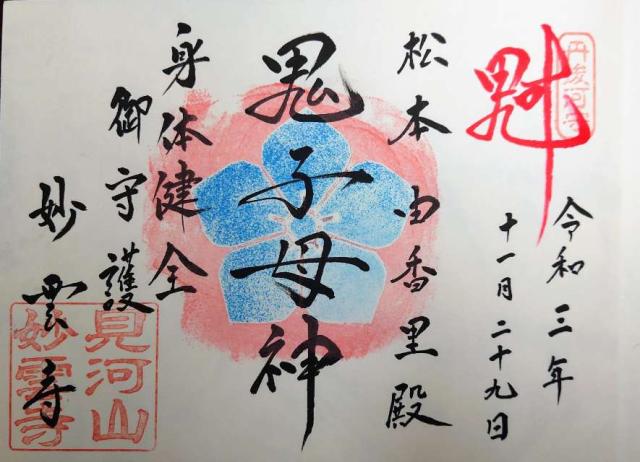 魁
令和三年
十一月二十九日
松本由香里殿
鬼子母神
身体健全
御守護
妙雲寺
見河山
妙雲寺